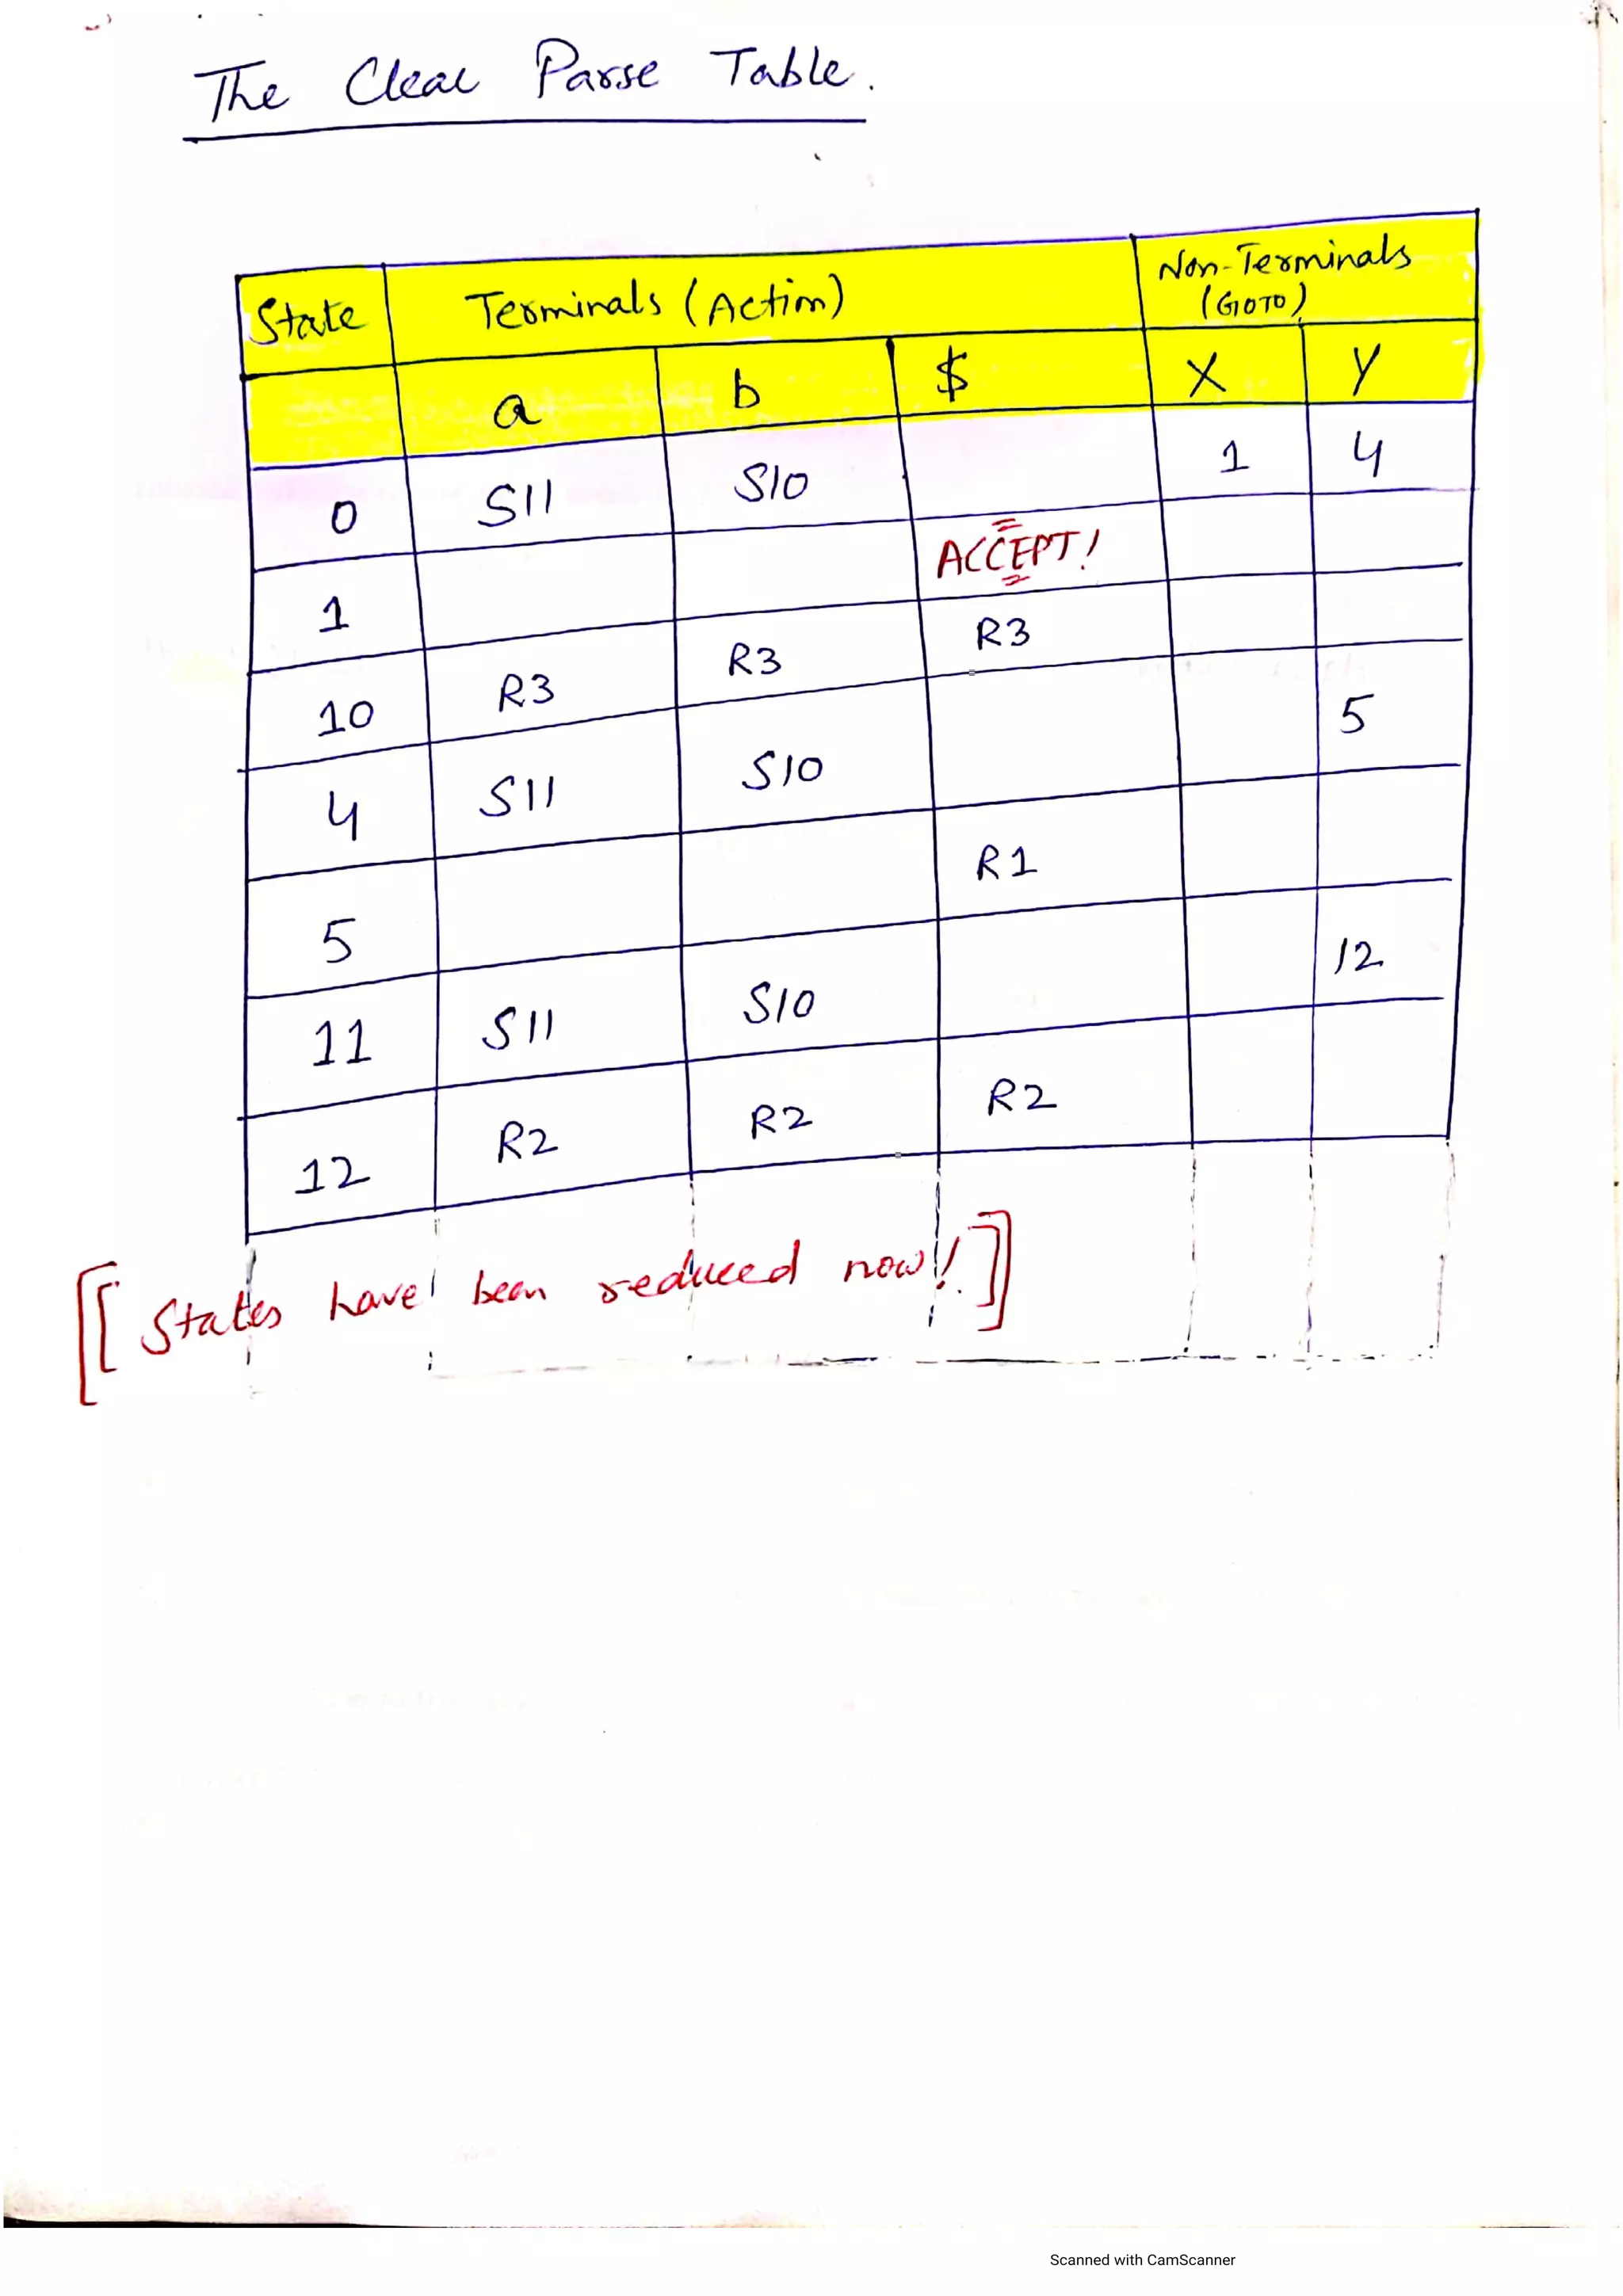 The Clear Parse Table.
State Terminals (Action) Non-Terminals
(GOTO)
a b $ X Y
0 S11 S10 1 4
1 ACCEPT!
10 R3 R3 R3
4 S11 S10 5
5 R1
11 S11 S10 12
12 R2 R2 R2
[[ States have been reduced now! ]]
Scanned with CamScanner